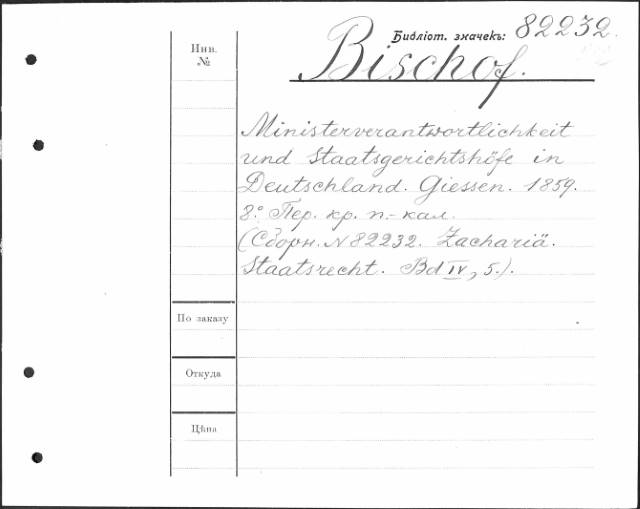 Библіот. значекъ: 82232.
Инв. №
Bischof.
Ministerverantwortlichkeit
und Staatsgerichtshöfe in
Deutschland. Giessen. 1859.
8.° Пер. кр. п.-кал.
(Сборн. N 82232. Zachariä.
Staatsrecht. Bd IV, 5.).
По заказу
Откуда
Цѣна